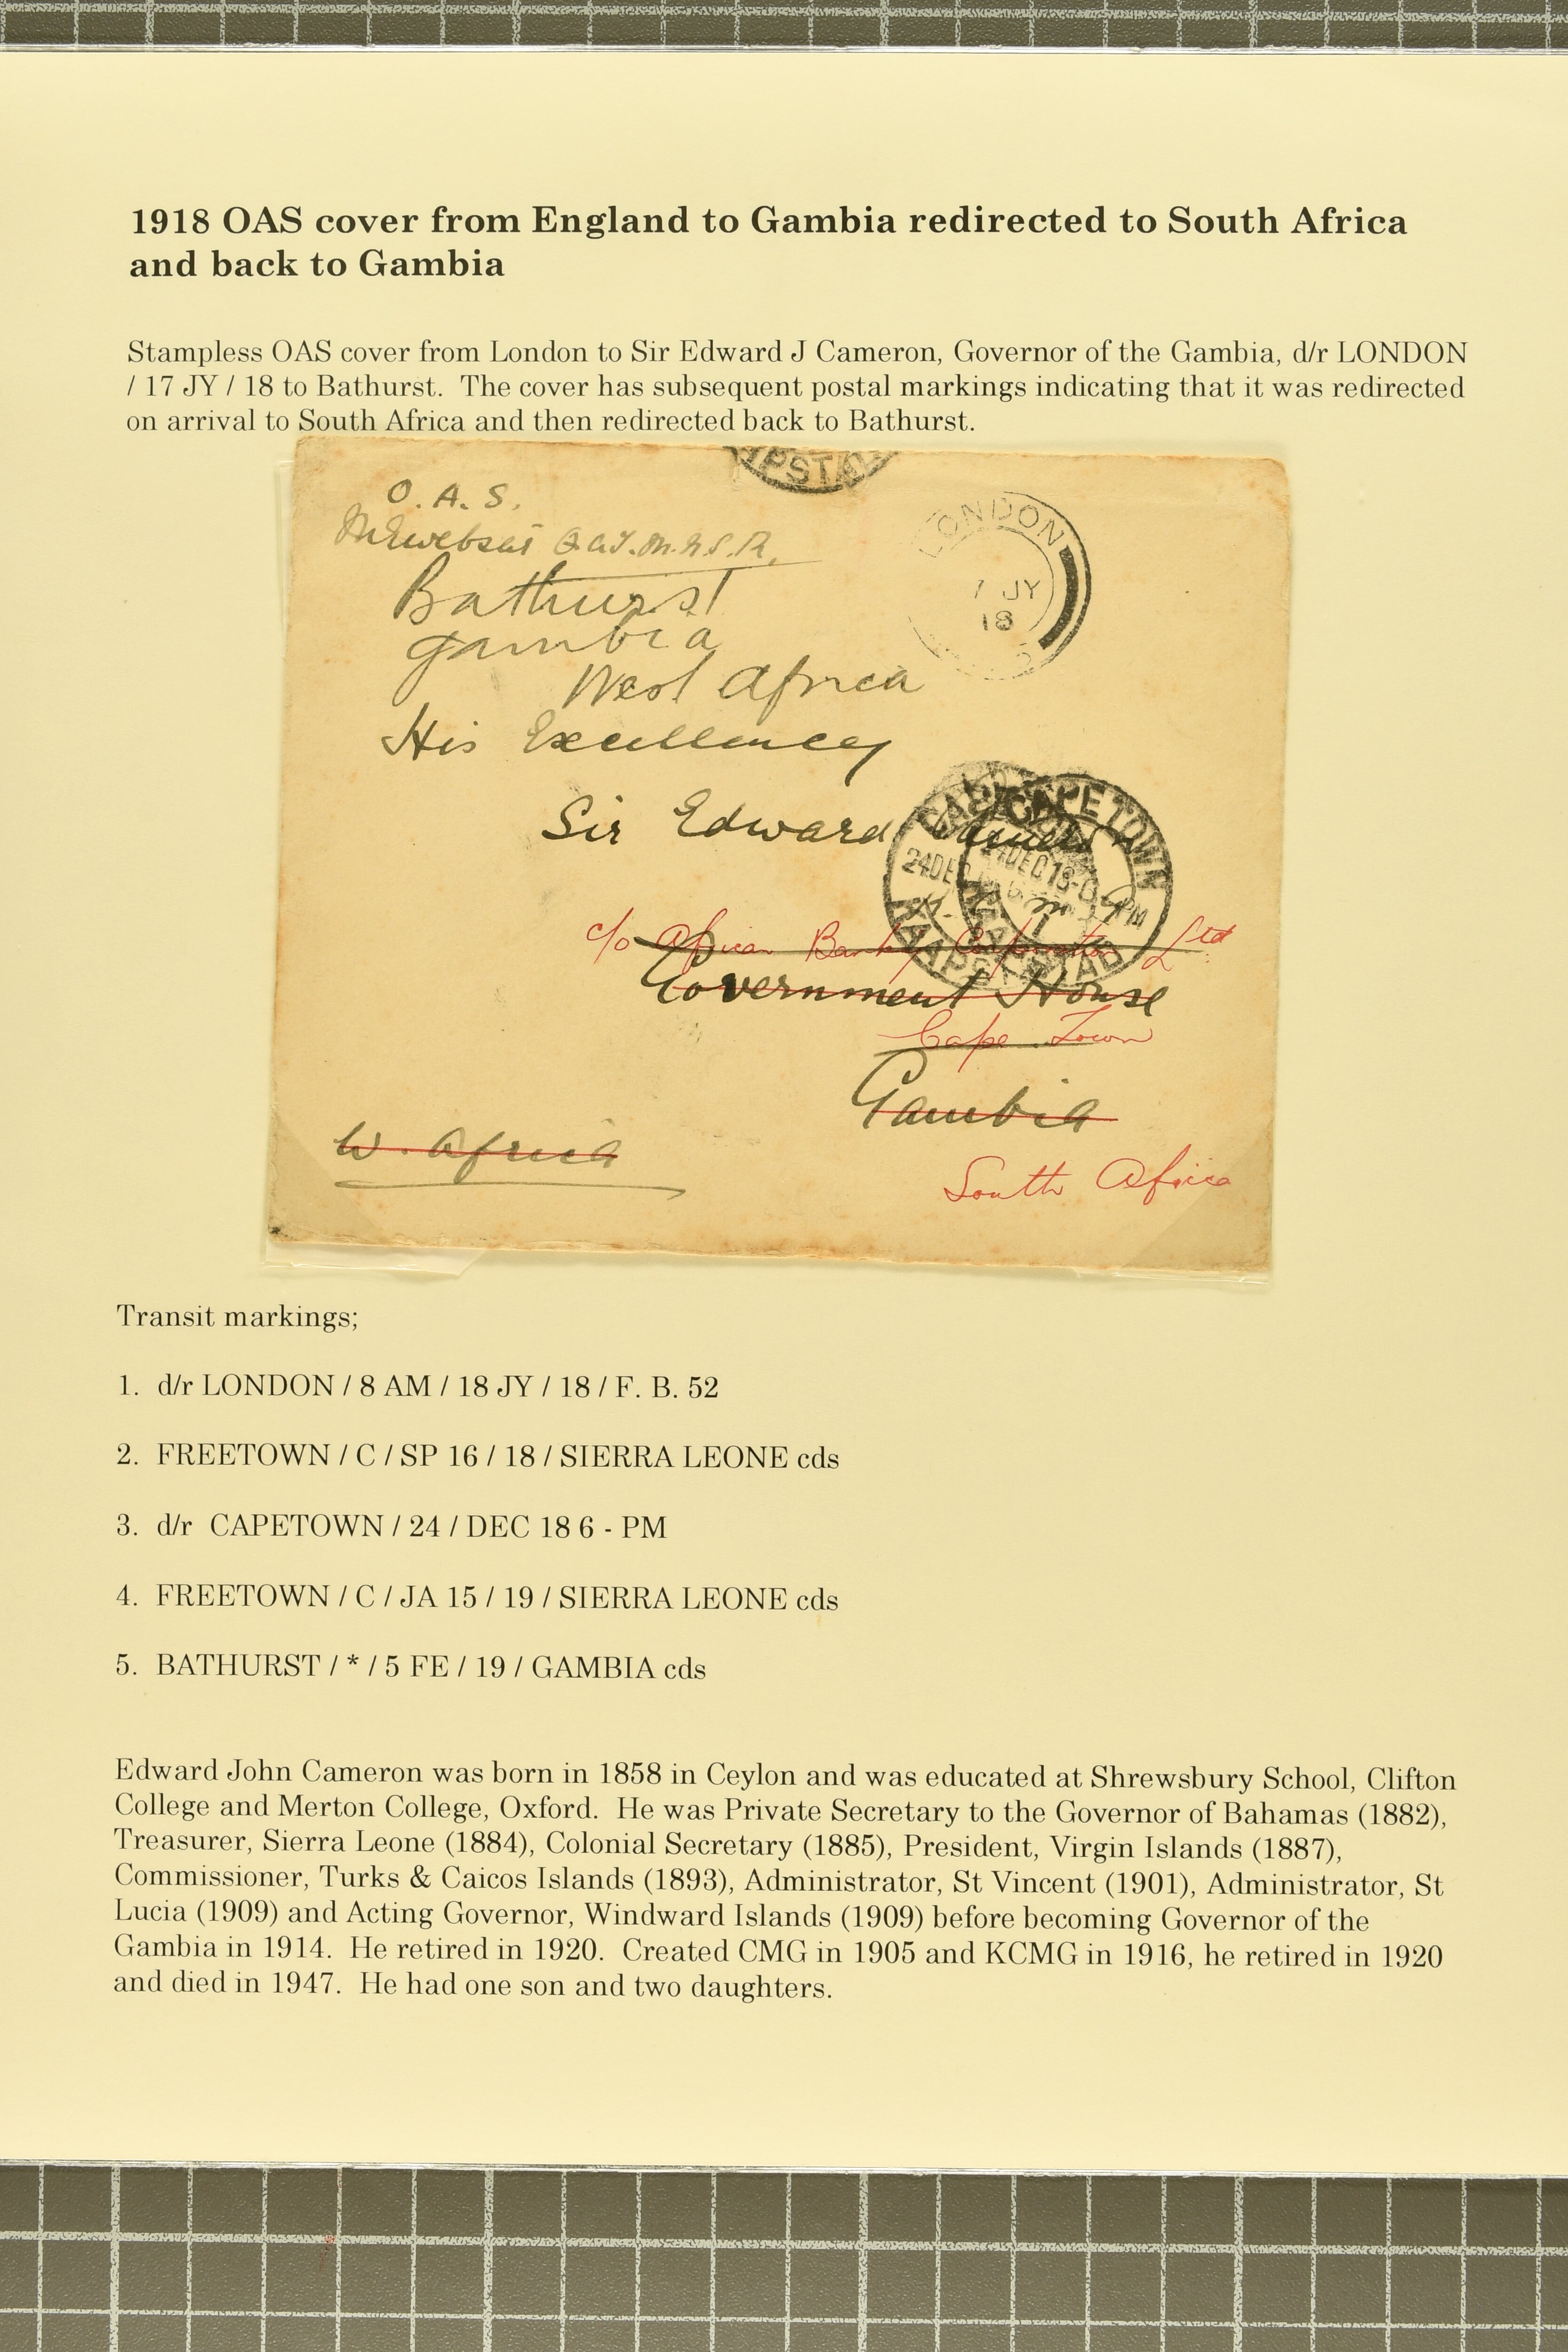 1918 OAS cover from England to Gambia redirected to South Africa
and back to Gambia
Stampless OAS cover from London to Sir Edward J Cameron, Governor of the Gambia, d/r LONDON
/ 17 JY / 18 to Bathurst. The cover has subsequent postal markings indicating that it was redirected
on arrival to South Africa and then redirected back to Bathurst.
O.A.S.
Bathurst
Gambia
West Africa
LONDON
7 JY
18
His Excellency
Sir Edward
CAPETOWN
24 DEC 18 - 6 PM
KAAPSTAD
c/o African Banking Corporation Ltd
Government House
Cape Town
Gambia
W. Africa
South Africa
Transit markings;
1. d/r LONDON / 8 AM / 18 JY / 18 / F. B. 52
2. FREETOWN / C / SP 16 / 18 / SIERRA LEONE cds
3. d/r CAPETOWN / 24 / DEC 18 6 - PM
4. FREETOWN / C / JA 15 / 19 / SIERRA LEONE cds
5. BATHURST / * / 5 FE / 19 / GAMBIA cds
Edward John Cameron was born in 1858 in Ceylon and was educated at Shrewsbury School, Clifton
College and Merton College, Oxford. He was Private Secretary to the Governor of Bahamas (1882),
Treasurer, Sierra Leone (1884), Colonial Secretary (1885), President, Virgin Islands (1887),
Commissioner, Turks & Caicos Islands (1893), Administrator, St Vincent (1901), Administrator, St
Lucia (1909) and Acting Governor, Windward Islands (1909) before becoming Governor of the
Gambia in 1914. He retired in 1920. Created CMG in 1905 and KCMG in 1916, he retired in 1920
and died in 1947. He had one son and two daughters.